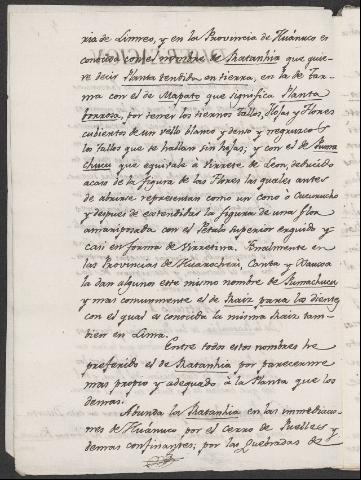 ria de Linneo, y en la Provincia de Huánuco es
conocida con el nombre de Ratanhia que quie-
re decir Planta tendida en tierra, en la de Tar-
ma con el de Mapato que significa Planta
borrosa, por tener los tiernos tallos, Hojas y Flores
cubiertos de un vello blanco y denso y negruzcos
los tallos que se hallan sin hojas; y con el de Puma
chucu que equivale à Birrete de Leon, deducido
acaso de la figura de las Flores las quales antes
de abrirse representan como un cono ò Cucurucho
y despues de extendidas la figura de una flor
amariposada con el Petalo superior erguido y
casi en forma de Birretina. Finalmente en
las Provincias de Huarocheri, Canta y Xauxa
la dan algunos este mismo nombre de Pumachucu
y mas comunmente el de Raiz para los dientes
con el qual es conocida la misma Raiz tam-
bien en Lima.
Entre todos estos nombres he
preferido el de Ratanhia por parecerme
mas propio y adequado à la Planta que los
demas.
Abunda la Ratanhia en las inmediacio-
nes de Huánuco por el cerro de Puelles y
demas confinantes; por las Quebradas de